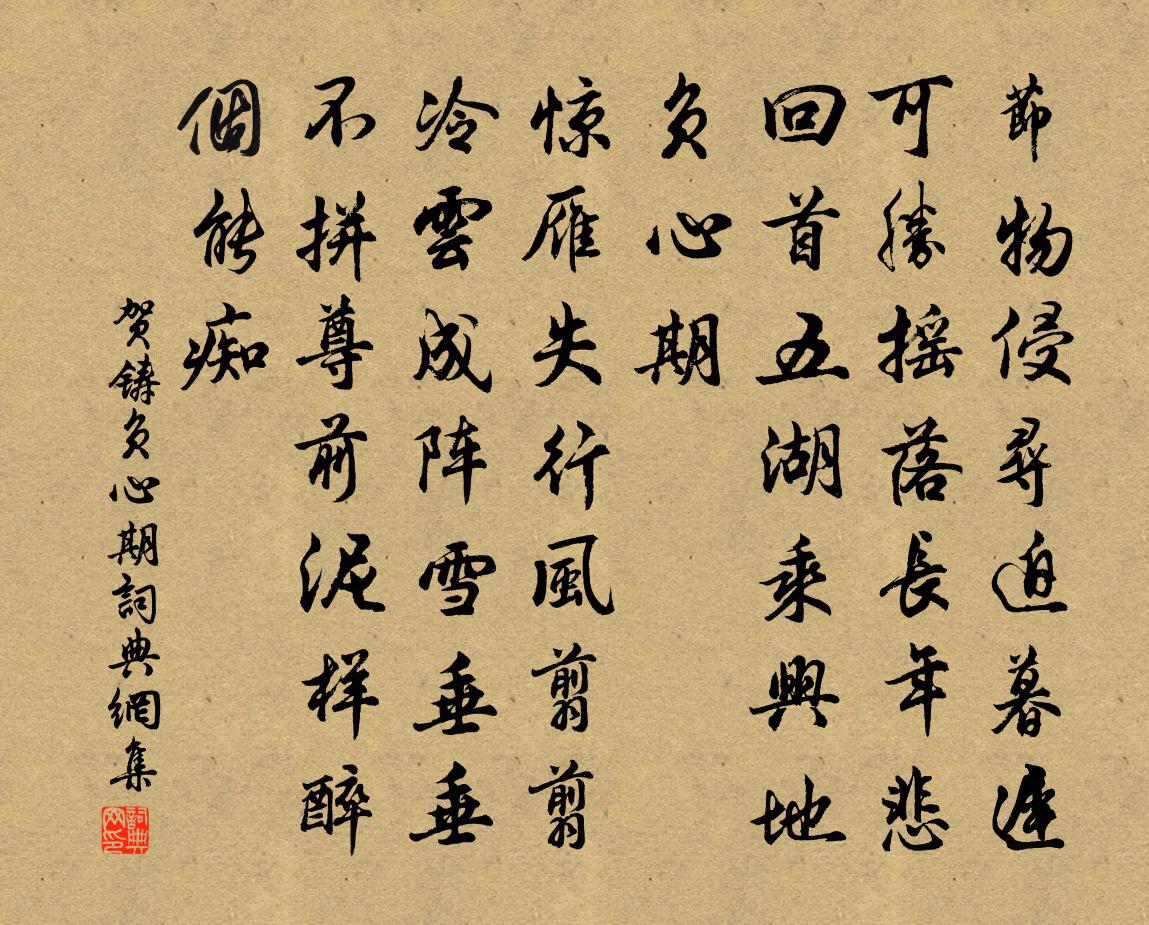 節物侵尋迫暮遲
可勝摇落長年悲
回首五湖乘興地
負心期
惊雁失行風剪剪
冷雲成阵雪垂垂
不拼尊前泥样醉
個能痴
贺鑄負心期詞典網集
詞典网印